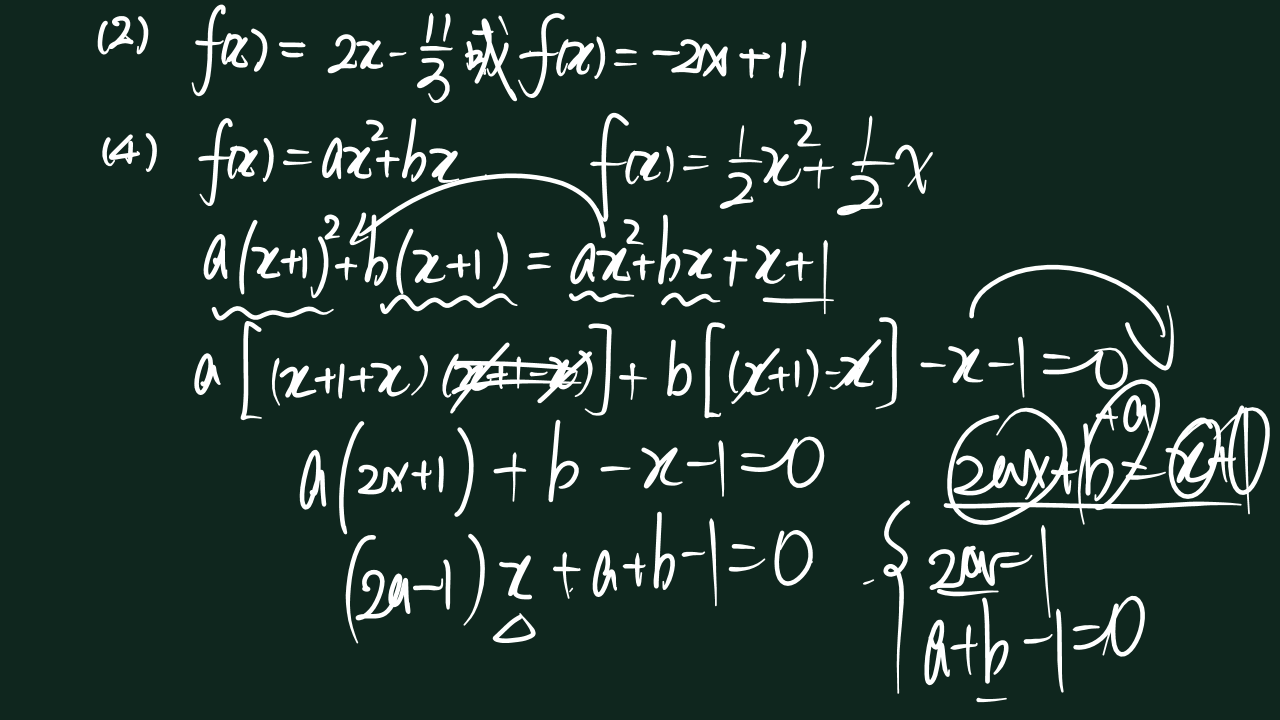 (2) f(x) = 2x - 11/3 或 f(x) = -2x + 11
(4) f(x) = ax² + bx f(x) = 1/2 x² + 1/2 x
a(x+1)² + b(x+1) = ax² + bx + x + 1
a[(x+1+x)(x+1-x)] + b[(x+1)-x] - x - 1 = 0
a(2x+1) + b - x - 1 = 0
2ax + b + a = x + 1
(2a-1)x + a + b - 1 = 0
2a = 1
a + b - 1 = 0